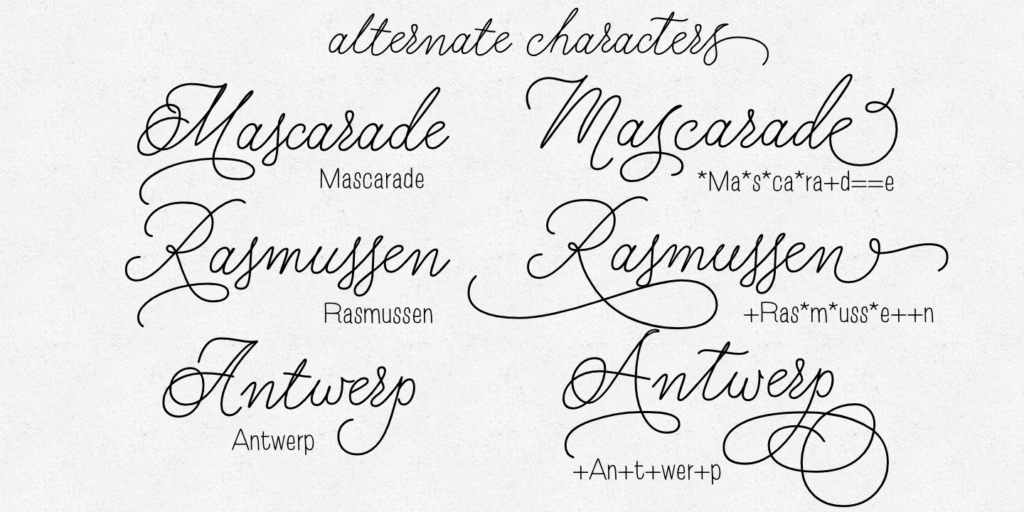 alternate characters
Mascarade Mascarade
Mascarade *Ma*s*ca*ra+d==e
Rasmussen Rasmussen
Rasmussen +Ras*m*uss*e++n
Antwerp Antwerp
Antwerp +An+t+wer+p